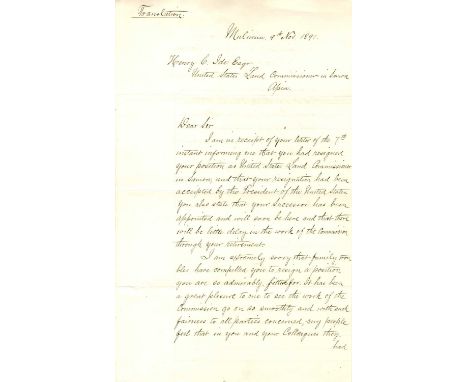 Translation.
Mulinuu, 9th Nov 1891.
Henry C. Ide Esqr
United States Land Commissioner in Samoa
Apia.
Dear Sir
I am in receipt of your letter of the 7th
instant informing me that you had resigned
your position as United States Land Commissioner
in Samoa, and that your resignation had been
accepted by the President of the United States
You also state that your Successor has been
appointed and will soon be here and that there
will be little delay in the work of the Commission
through your retirement.
I am extremely sorry that family trou-
bles have compelled you to resign a position
you are so admirably fitted for. It has been
a great pleasure to me to see the work of the
Commission go on so smoothly and with such
fairness to all parties concerned, my people
feel that in you and your Colleagues they
had